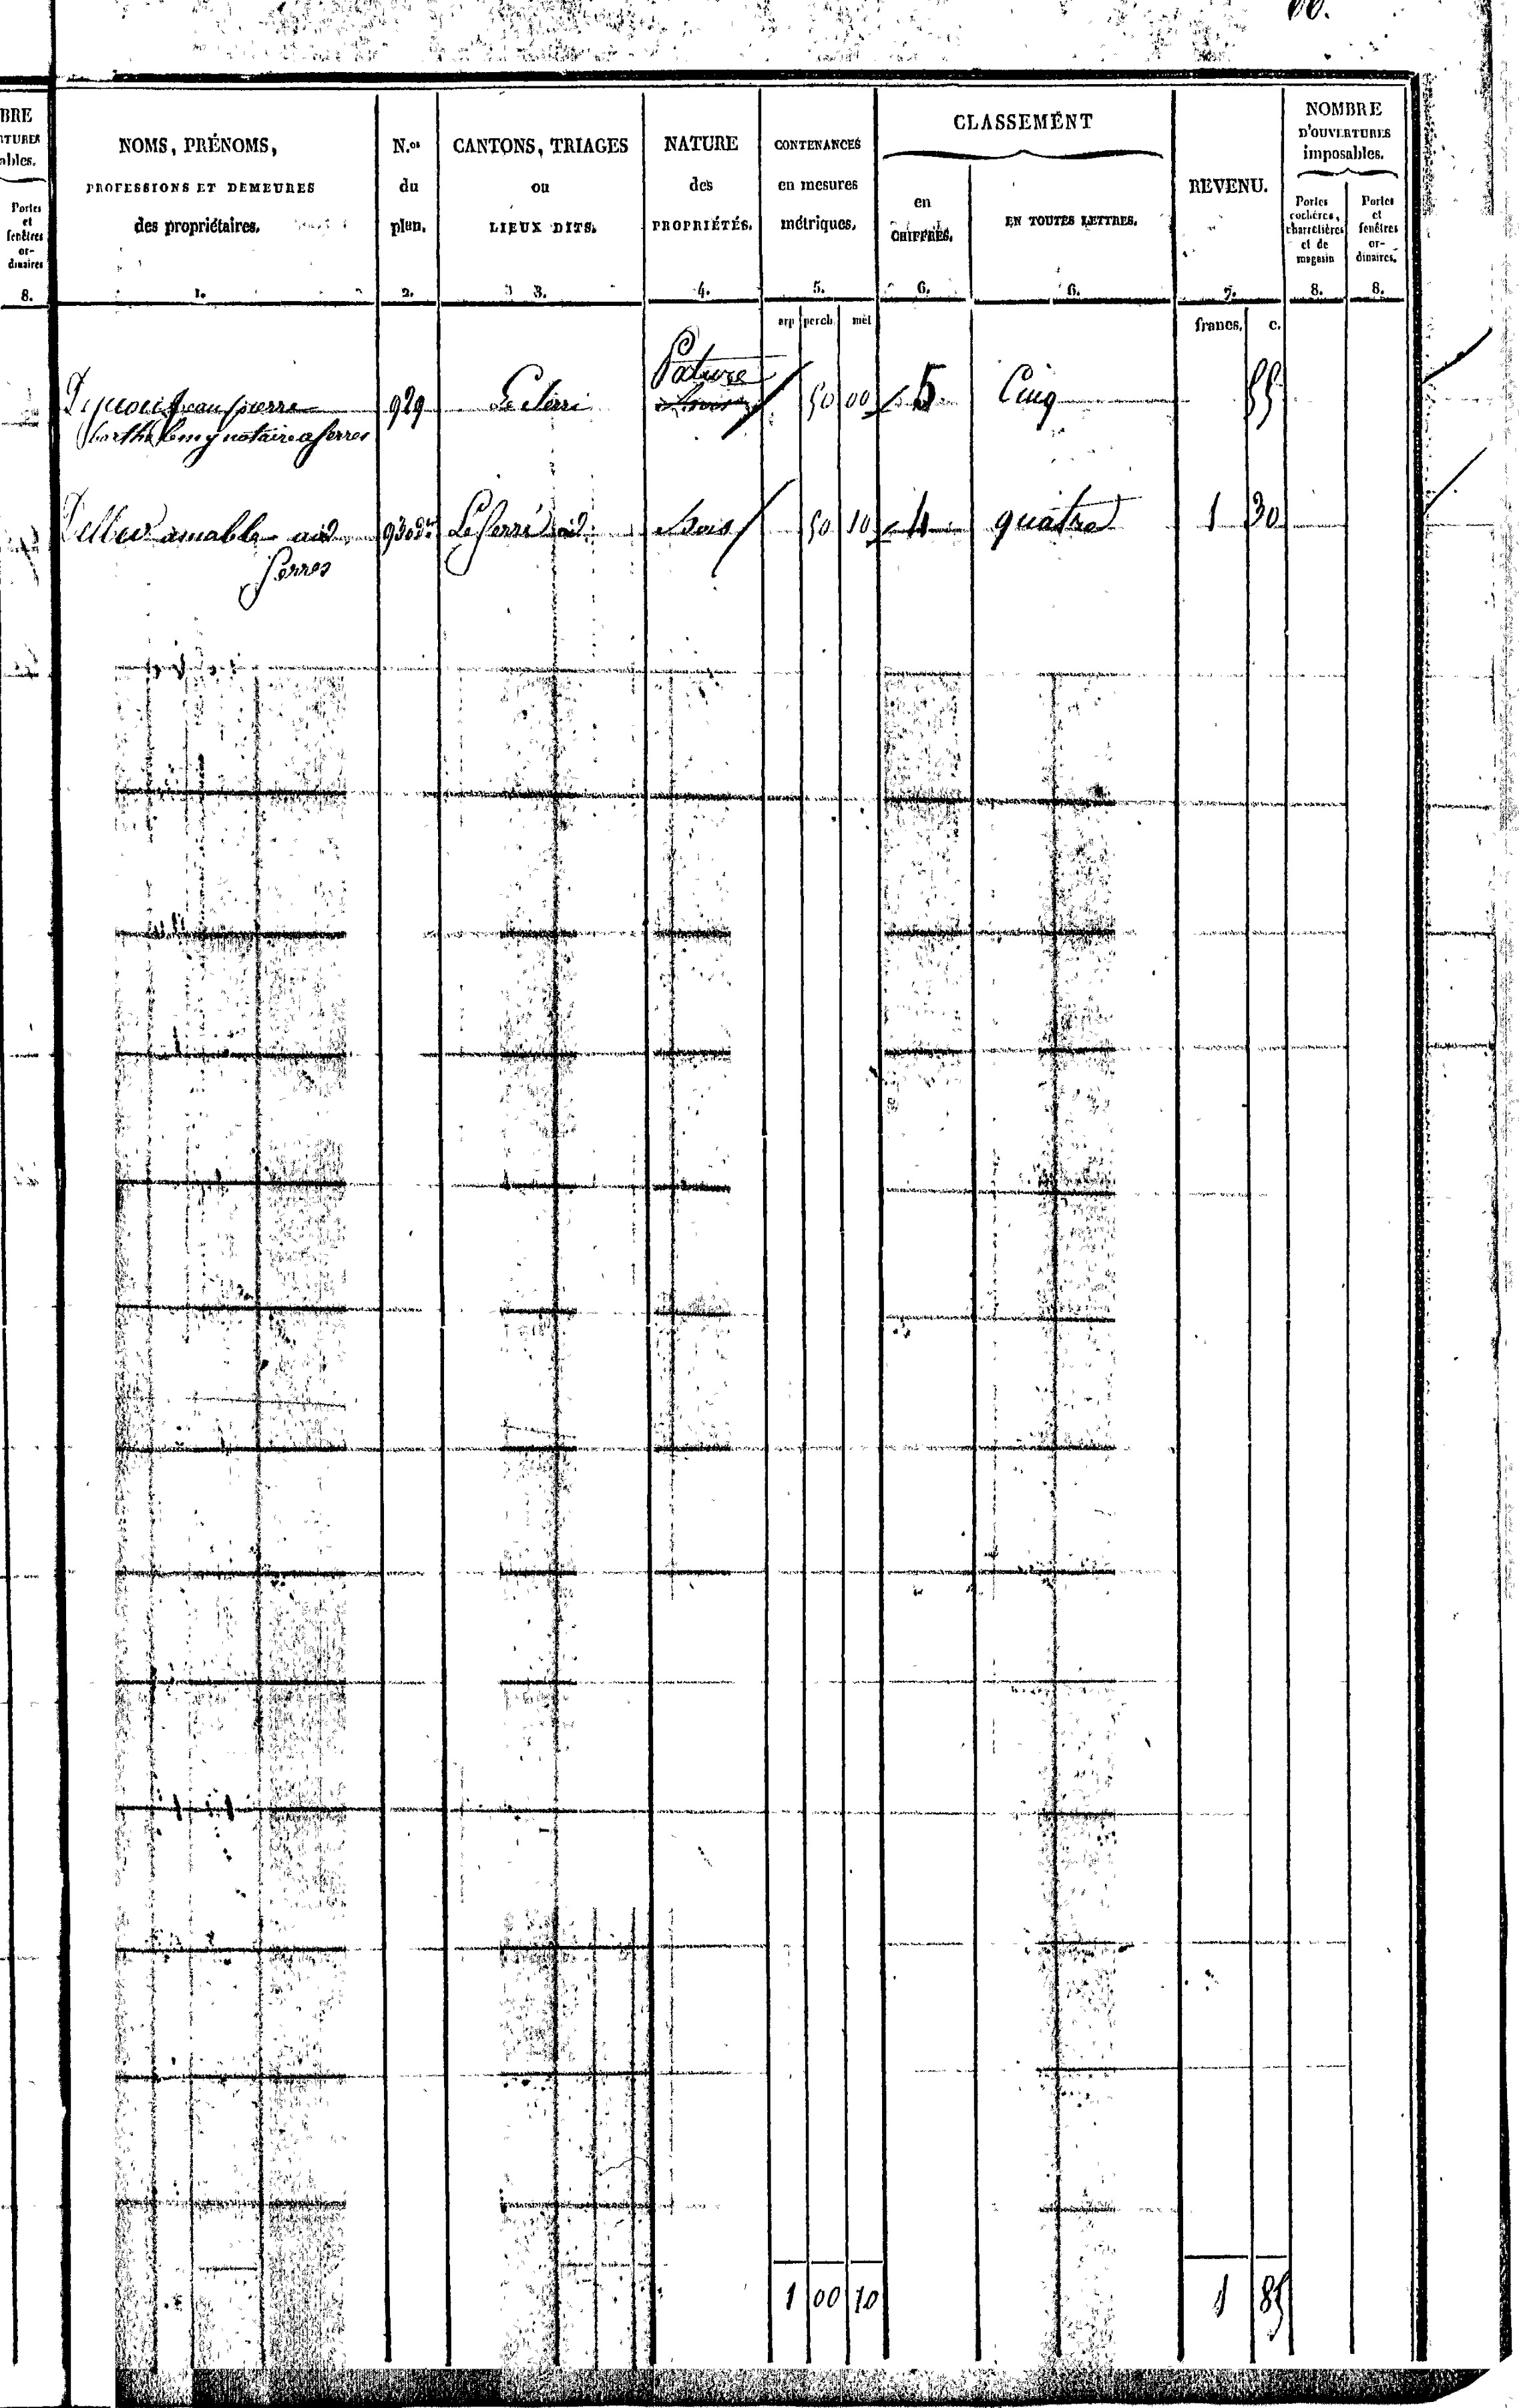 60.
BRE
TURES
ables.
Portes
et
fenêtres
or-
dinaires
8.
NOMS, PRÉNOMS,
PROFESSIONS ET DEMEURES
des propriétaires.
1.
N.os
du
plan.
2.
CANTONS, TRIAGES
ou
LIEUX DITS.
3.
NATURE
des
PROPRIÉTÉS.
4.
CONTENANCES
en mesures
métriques.
5.
CLASSEMENT
en
CHIFFRES.
6.
EN TOUTES LETTRES.
6.
REVENU.
7.
NOMBRE
D'OUVERTURES
imposables.
Portes
cochères,
charretières
et de
magasin
8.
Portes
et
fenêtres
or-
dinaires.
8.
arp perch. mèt
francs. c.
Jean pierre 929 Pature 50 00 5 Cinq 55
barthelemy notaire a serres
amable aud. 930 Bois 50 10 4 quatre 1 30
serres
1 00 10 1 85